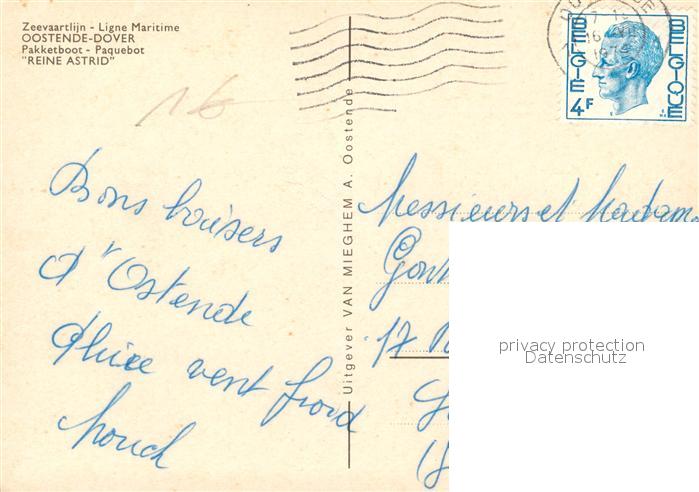 Zeevaartlijn - Ligne Maritime
OOSTENDE-DOVER
Pakketboot - Paquebot
"REINE ASTRID"
16
BELGIE
BELGIQUE
4F
Uitgever VAN MIEGHEM A. Oostende
Bons baisers
d'Ostende
Pluie vent froid
Messieurs et Madam
17
privacy protection
Datenschutz